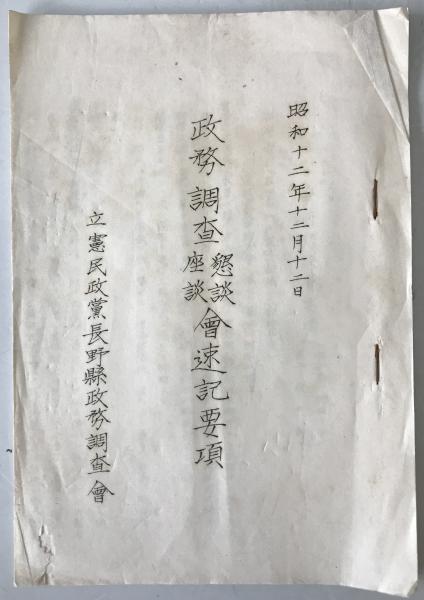 昭和十二年十二月十二日
政務調査懇談座談會速記要項
立憲民政黨長野縣政務調査會